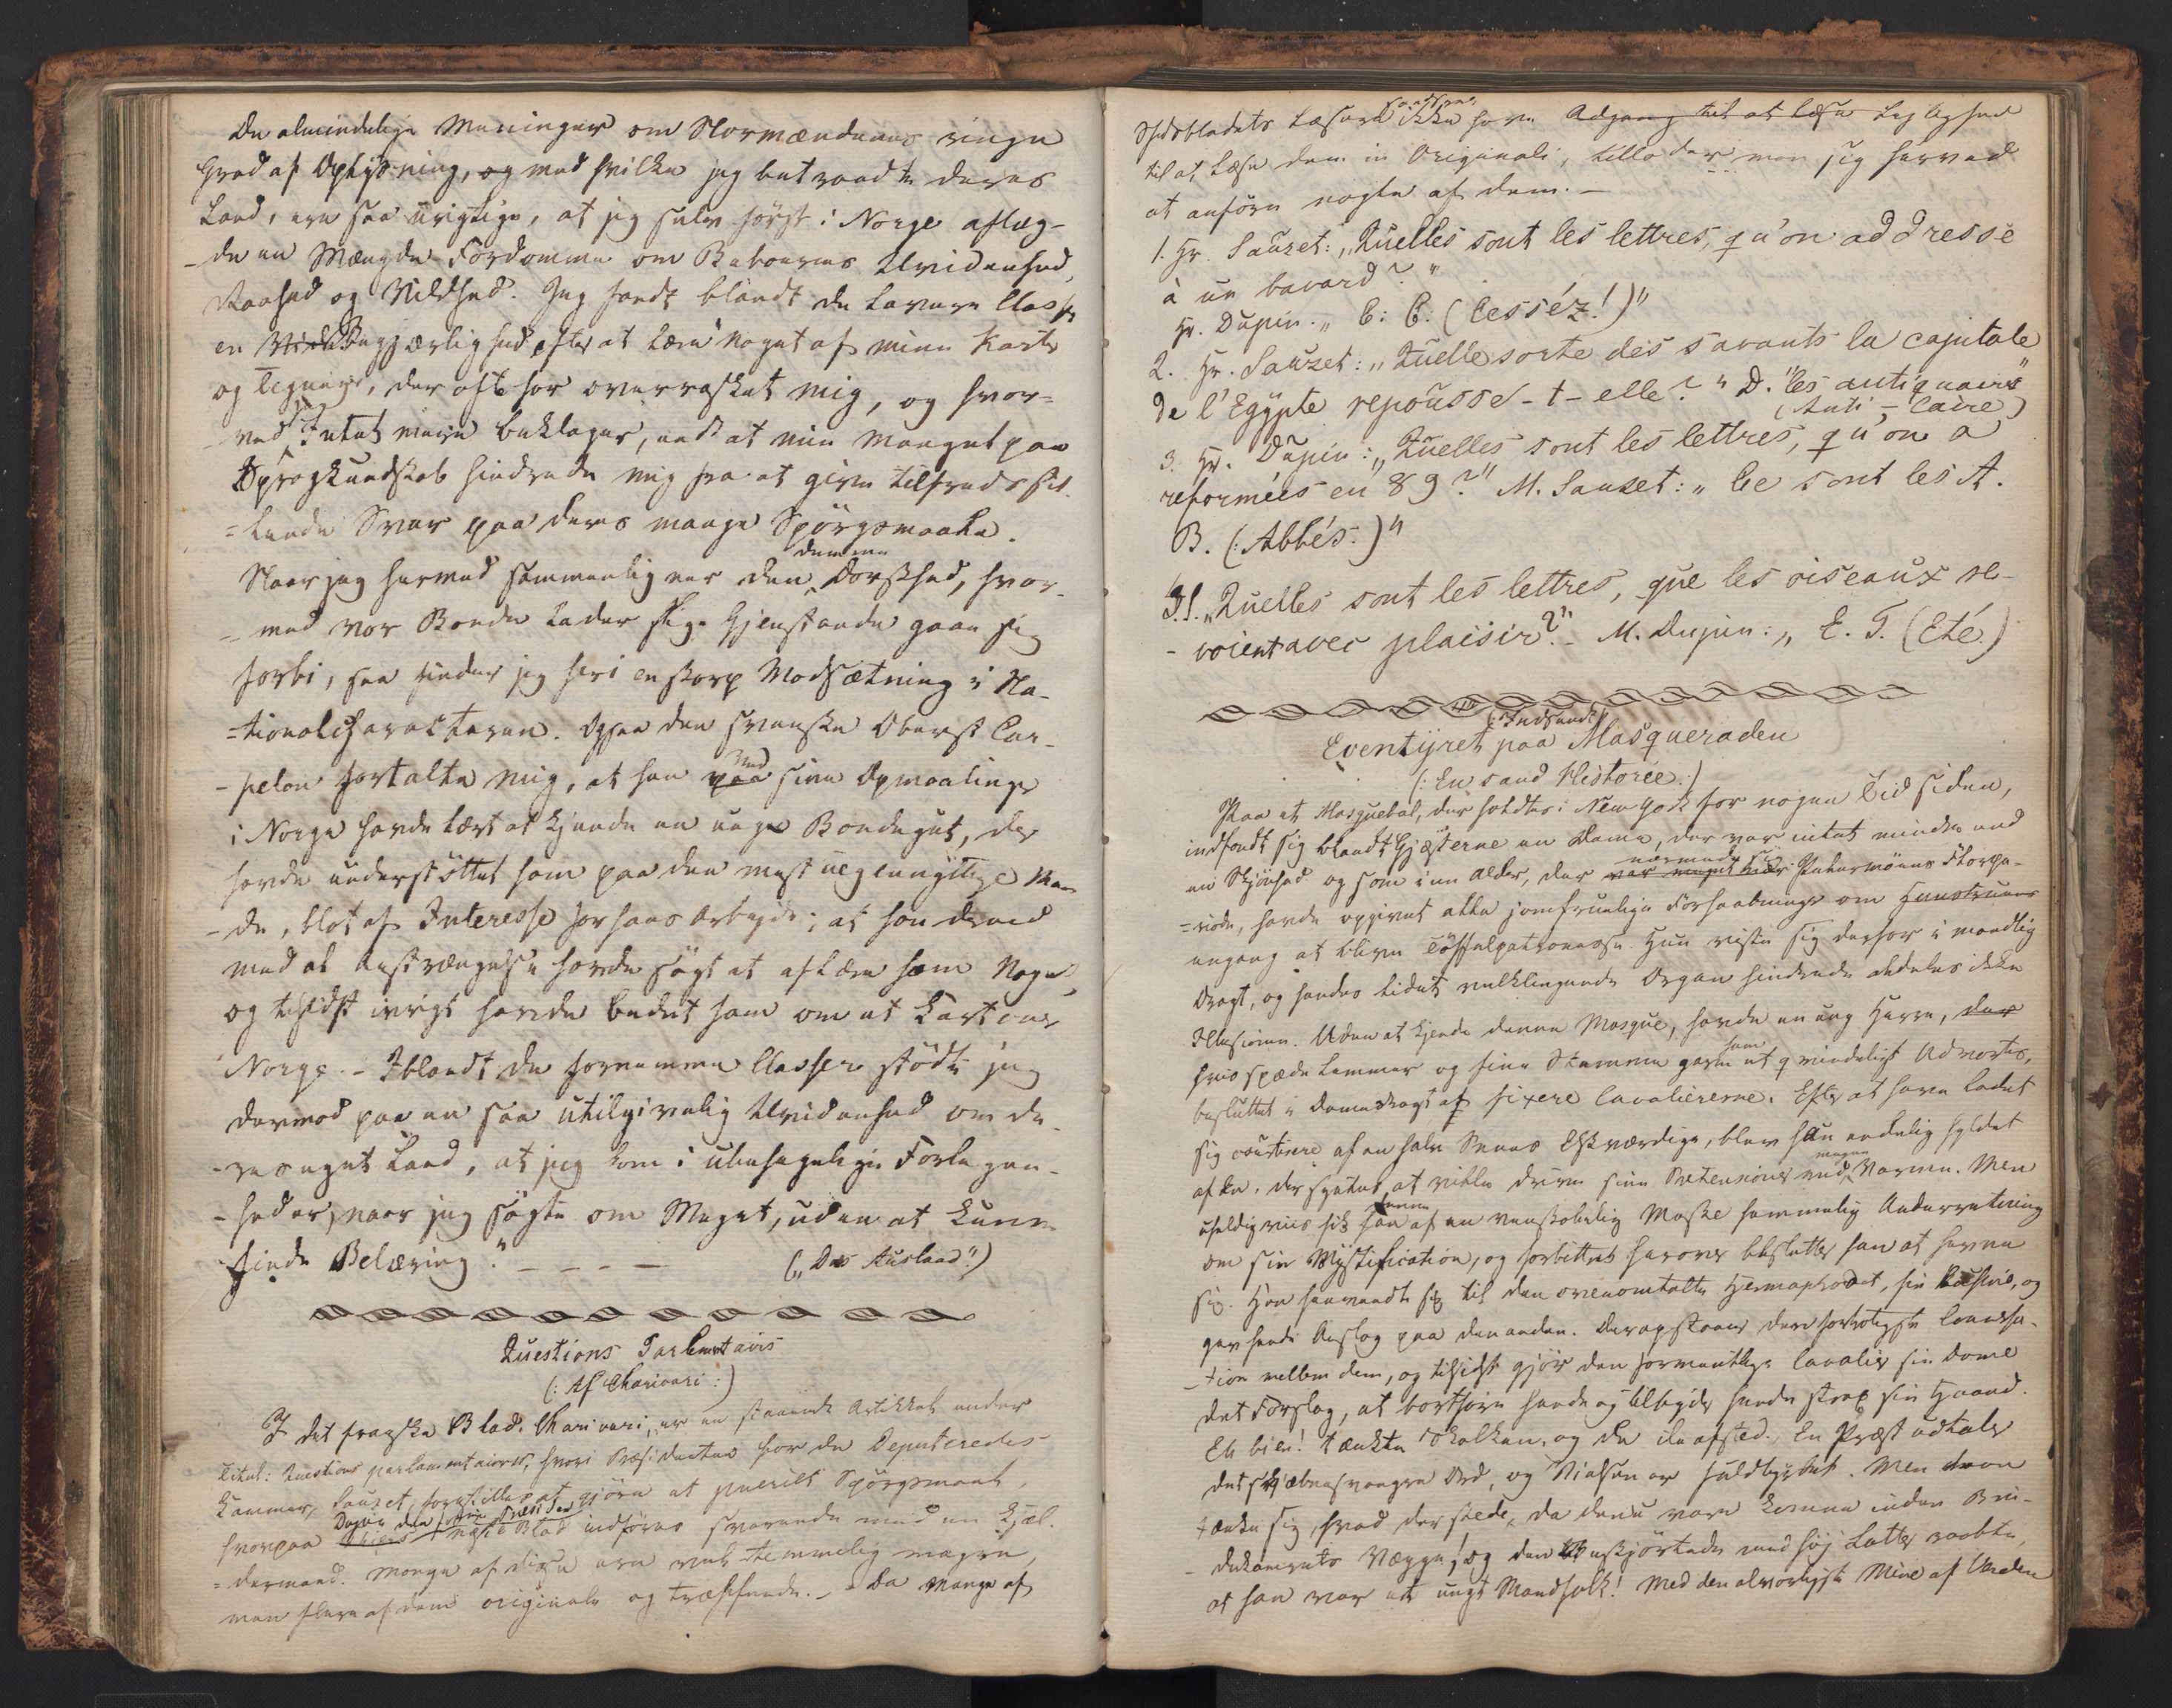 De almindelige Meninger om Normændenes ringe
Grad af Oplysning, og med hvilke jeg betraadte deres
Land, ere saa urigtige, at jeg selv først i Norge aflag-
-de en Mængde Fordomme om Beboernes Uvidenhed,
Raahed og Vildhed. Jeg fandt blandt de lavere Classer
en Begjærlighed efter at lære noget af mine Karter
og Tegninger, der ofte har overrasket mig, og hvor-
ved Intet mere beklages, end at min Mangel paa
Sprogkundskab hindrede mig fra at give tilfredsstil-
=lende Svar paa deres mange Spörgsmaale.
Naar jeg hermed sammenligner den dumme Dorskhed, hvor-
-med vor Bonde lader slige Gjenstande gaae sig
forbi, saa finder jeg heri en skarp Modsætning i Na-
-tionalcharacteren. Ogsaa den svenske Oberst Car-
-pelan fortalte mig, at han ved sine Opmaalinger
i Norge havde lært at kjende en ung Bondegut, der
havde understöttet ham paa den mest uegennyttige Maa-
-de, blot af Interesse for hans Arbejde; at han derved
med al Anstrængelse havde sögt at aflære ham Noget,
og tilsidst ivrigt havde bedet ham om et Kart over
Norge. - Iblandt de fornemme Classer stödte jeg
derimod paa en saa utilgivelig Uvidenhed om de-
-res eget Land, at jeg kom i ubehagelige Forlegen-
-heder, naar jeg sögte om Meget, uden at kunne
finde Belæring." - - - - („Das Ausland.")
Questions Parlementairs
(: Af Charivari :)
I det franske Blad, Charivari, er en staaende Artikkel under
Titel: Questions parlamentaires, hvori Præsidenten for de Deputeredes
Kammer, Sauzet, forestilles at gjöre et puerilt Spörgsmaal,
hvorpaa Dupin den forrige Præsident i næste Blad indföres svarende med en Kjæl-
=dermand. Mange af disse ere vel temmelig magre,
men flere af dem originale og træffende. - Da Mange af
Stiftsbladets Læsere ikke have Adgang til at læse Lejlighed
til at læse dem in Originali, tillader man sig herved
at anföre nogle af dem. -
1. Hr. Sauzet: „Quelles sont les lettres, qu'on addresse
à un bavard?"
Hr. Dupin. „ C: C. (Cesséz!)"
2. Hr. Sauzet: „Quelle sorte des savants la capitale
de l'Egÿpte repousse-t-elle?" D. "les antiquairs"
(Anti-Caire)
3. Hr. Dupin: „Quelles sont les lettres, qu'on a
reformées en 89?" M. Sauzet: „Ce sont les A.
B. (:Abbés.)"
„Quelles sont les lettres, que les oiseaux re-
-voient avec plaisir?" - M. Dupin: „ E. T. (Eté.)
(:Indsendt:)
Eventÿret paa Masqueraden
(:En sand Historie.:)
Paa et Masquebal, der holdtes i New York for nogen Tid siden,
indfandt sig blandt Gjæsterne en Dame, der var intet mindre end
en Skjönhed og som i en Alder, der nærmede sig Pebermöens Skærpe-
-rode, havde opgivet alle jomfruelige Forhaabninger om
engang at blive Töffelpatronesse. Hun viste sig derfor i mandlig
Dragt, og hendes lidet velklingende Organ hindrede aldeles ikke
Illusionen. Uden at kjende denne Masque, havde en ung Herre, der
hvis spæde Lemmer og fine Stemme gave ham et qvindeligt Udvortes,
besluttet i Damedragt at fixere Cavaliererne. Efter at have ladet
sig courtisere af en halv Snees Elskværdige, blev han endelig hyldet
af En, der syntes at ville drive sine Pretensioner med megen Varme. Men
uheldigviis fik han af en venskabelig Maske hemmelig Underretning
om sin Mystification, og forbittret herover besluttede han at hevne
sig. Han henvendte sig til den ovenomtalte Hermaphrodit, og
gav hende Anslag paa den anden. Derop staaer den fortroligste Conversa-
-tion mellem dem, og tilsidst gjör den formentlige Cavalier sin Dame
det Forslag, at bortföre hende og tilbyde hende strax sin Haand.
Eh bien! tænkte Skalken, og de ile afsted. En Præst udtaler
det skjæbnesvangre Ord, og Vielsen er fuldbyrdet. Men man
tænke sig, hvad der skede, da denne vare komne inden Bru-
-dekamrets Vægge; og den Underskjörtede med höj Latter raabte,
at han var et ungt Mandfolk! Med den alvorligste Mine af Verden